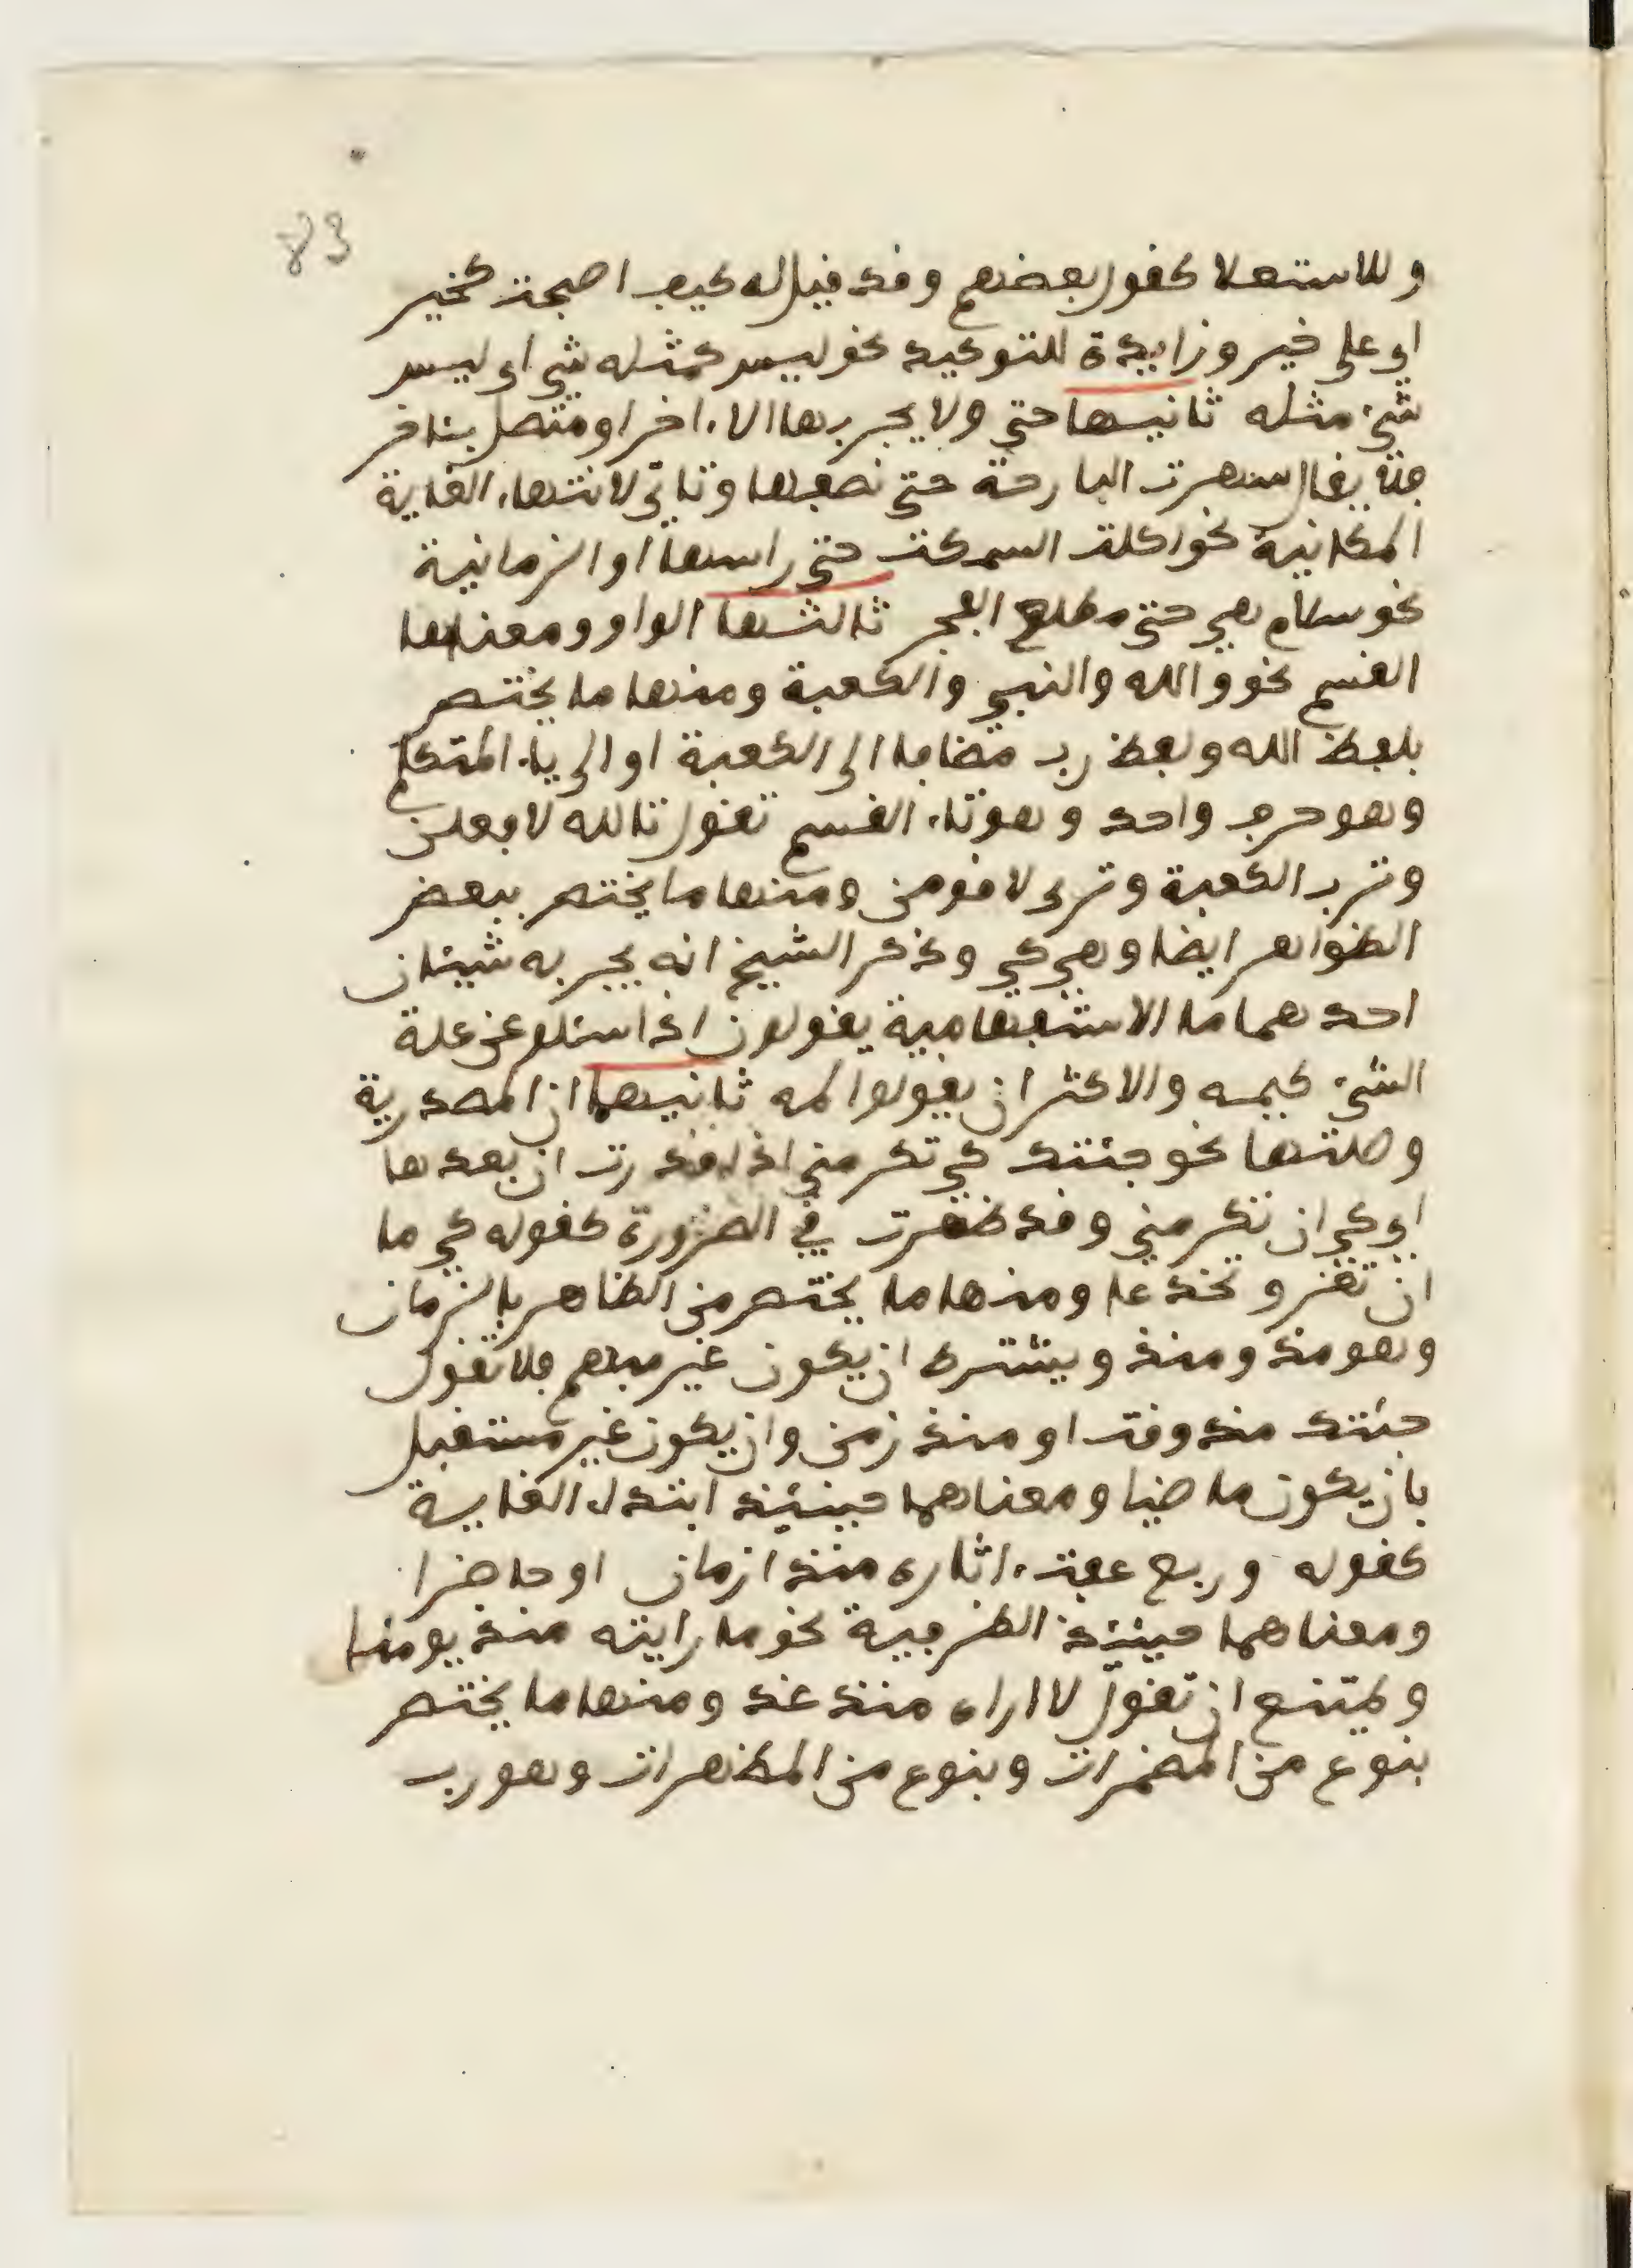 83
وللاستعلا كقول بعضهم وقد قيل له كيف اصبحت كخير
اي على خير وزايدة للتوكيد نحو ليس كمثله شي اي ليس
شيء مثله ثانيها حتى ولا يجر بها الا اخر او متصل بئاخر
فلا يقال سهرت البارحة حتى نصفها وتاتي لانتهاء الغاية
المكانية نحو اكلت السمكت حتى راسها او الزمانية
نحو سلام هي حتى مطلع الفجر ثالثها الواو ومعناها
القسم نحو والله والنبي والكعبة ومنها ما يختص
بلفظ الله ولفظ رب مضافا الى الكعبة او الى ياء المتكلم
وهو حرف واحد وهو تاء القسم تقول تالله لافعلن
وترب الكعبة وتربي لاقومن ومنها ما يختص ببعض
الظواهر ايضا وهي كي وذكر الشيخ انه يجر به شيئان
احدهما ما الاستفهامية يقولون اذا سئلو عن علة
الشيء كيمه والاكثر ان يقولوا لمه ثانيهما ان المصدرية
وصلتها نحو جئتك كي تكرمني اذا قدرت ان بعدها
اي كي ان تكرمني وقد ظهرت في الضرورة كقوله كي ما
ان تغر وتخدعا ومنها ما يختص من الظاهر بالزمان
وهو مذ ومنذ ويشترط ان يكون غير مبهم فلا تقول
جئتك مذ وقت او منذ زمن وان يكون غير مستقبل
بان يكون ماضيا ومعناهما حينئذ ابتداء الغاية
كقوله وربع عفت ءاثاره منذ ازمان او حاضرا
ومعناهما حينئذ الظرفية نحو ما رايته منذ يومنا
ويمتنع ان تقول لا اراه منذ غد ومنها ما يختص
بنوع من المضمرات وبنوع من المظهرات وهو رب